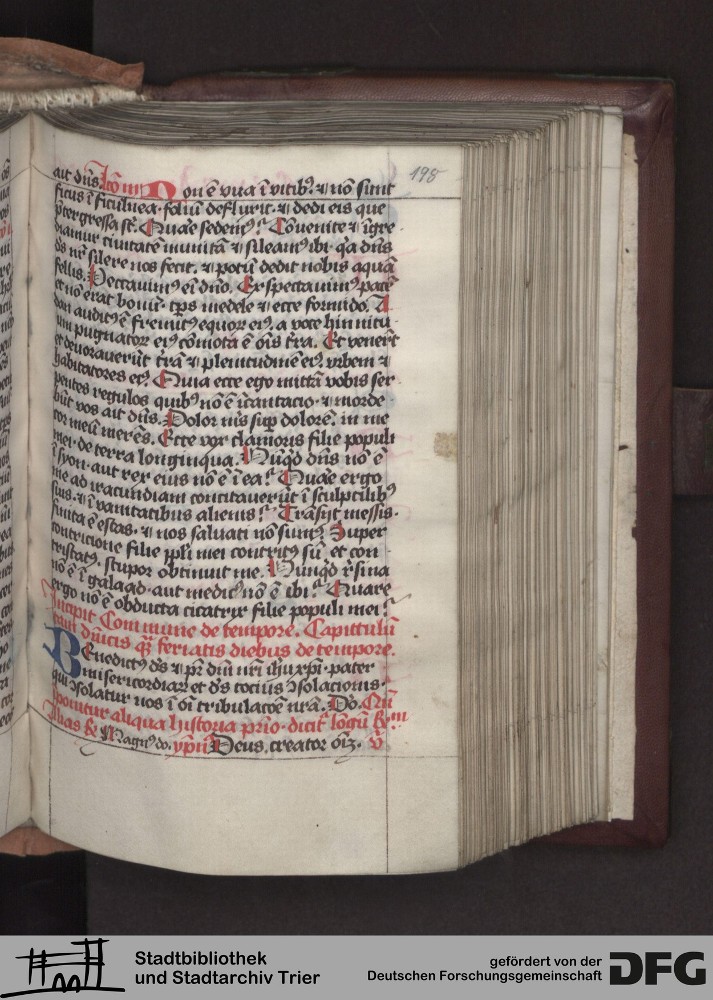 198
ait dn̄s. Lcō iii Non ē vua ī vitibꝰ. ⁊ nō sunt
ficus ī ficulnea. foliū defluxit. ⁊ dedi eis que
p̄tergressa st̄. Quare sedemꝰ. Cōuenite ⁊ īgre
diamur ciuitatē munitā ⁊ sileamꝰ ibi. qa dn̄s
ds̄ nr̄ silere nos fecit. ⁊ potū dedit nobis aquā
fellis. Peccauimꝰ ei dn̄o. Exspectauimꝰ pacē
et nō erat bonū. tp̄s medele ⁊ ecce formido. A
dan auditꝰ ē fremitꝰ equoꝝ eiꝰ. a voce hinnitu
um pugnatoꝝ eiꝰ cōmota ē oīs tr̄a. Et venert̄
et deuorauerūt tr̄ā ⁊ plenitudinē eiꝰ. vrbem ⁊
habitatores eiꝰ. Quia ecce ego mittā vobis ser
pentes regulos quibꝰ nō ē īcantacio. ⁊ morde
būt vos ait dn̄s. Dolor mꝰ sup̄ dolorē. in me
cor meū merēs. Ecce vox clamoris filie populi
mei. de terra longinqua. Nūqd dn̄s nō ē
ī syon. aut rex eius nō ē ī ea. Quare ergo
me ad iracundiam concitauerūt ī sculptilibꝰ
suis. ⁊ ī vanitatibus alienis. Trāsijt messis.
finita ē estas. ⁊ nos saluati nō sumꝰ. Super
contricione filie ppl̄i mei contritꝰ sū. et con
tristatꝰ. stupor obtinuit me. Nunqd resina
nō ē ī galaad. aut medicꝰ nō ē ibi. Quare
ergo nō ē obducta cicatrix filie populi mei.
Incipit Commune de tempore. Capitulū
tam dn̄icis qͣ̄ ferialis diebus de tempore.
Benedictꝰ ds̄ ⁊ pr̄ dn̄i nr̄i ihu xp̄i. pater
misericordiaꝝ et ds̄ tocius ꝯsolacionis.
qui ꝯsolatur nos ī oī tribulacōe nr̄a. Do. Cū
īponitur aliqua historia prīo. dicit̄ longū Rm̄
Alias R Magnꝰ do. ypn̄ Deus creator oīꝫ. v̄
Stadtbibliothek
und Stadtarchiv Trier
gefördert von der
Deutschen Forschungsgemeinschaft
DFG